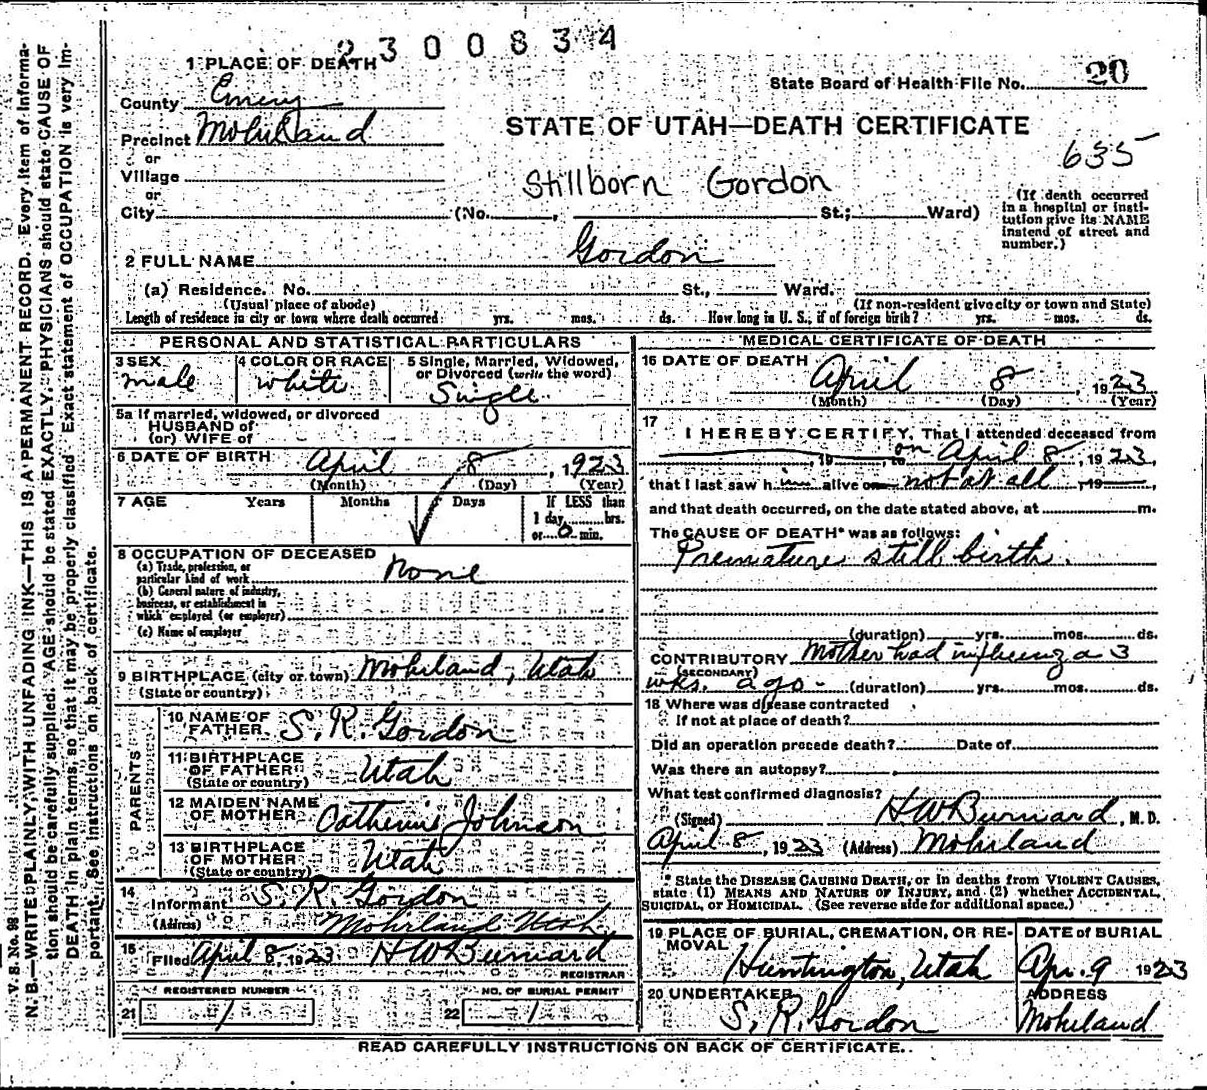 2300834
1 PLACE OF DEATH
State Board of Health File No. 20
County Emery
Precinct Mohrland
STATE OF UTAH—DEATH CERTIFICATE
635
or
Village
or
Stillborn Gordon
City (No. , St.; Ward)
(If death occurred in a hospital or institution give its NAME instead of street and number.)
2 FULL NAME Gordon
(a) Residence. No. St., Ward.
(Usual place of abode) (If non-resident give city or town and State)
Length of residence in city or town where death occurred yrs. mos. ds. How long in U. S., if of foreign birth? yrs. mos. ds.
PERSONAL AND STATISTICAL PARTICULARS
3 SEX male
4 COLOR OR RACE white
5 Single, Married, Widowed, or Divorced (write the word) Single
5a If married, widowed, or divorced
HUSBAND of
(or) WIFE of
6 DATE OF BIRTH April 8, 1923
(Month) (Day) (Year)
7 AGE Years Months Days If LESS than
1 day, hrs.
or 0 min.
8 OCCUPATION OF DECEASED
(a) Trade, profession, or
particular kind of work None
(b) General nature of industry,
business, or establishment in
which employed (or employer)
(c) Name of employer
9 BIRTHPLACE (city or town) Mohrland, Utah
(State or country)
PARENTS
10 NAME OF FATHER S. R. Gordon
11 BIRTHPLACE OF FATHER Utah
(State or country)
12 MAIDEN NAME OF MOTHER Catherine Johnson
13 BIRTHPLACE OF MOTHER Utah
(State or country)
14 Informant S. R. Gordon
(Address) Mohrland Utah
15 Filed April 8, 1923 H W Burnard
REGISTRAR
REGISTERED NUMBER NO. OF BURIAL PERMIT
21 1 22 1
MEDICAL CERTIFICATE OF DEATH
16 DATE OF DEATH April 8, 1923
(Month) (Day) (Year)
17 I HEREBY CERTIFY, That I attended deceased from
, 19 , to on April 8, 1923,
that I last saw him alive on not at all, 19
and that death occurred, on the date stated above, at m.
The CAUSE OF DEATH* was as follows:
Premature still birth.
(duration) yrs. mos. ds.
CONTRIBUTORY Mother had influenza 3
(SECONDARY)
wks. ago - (duration) yrs. mos. ds.
18 Where was disease contracted
If not at place of death?
Did an operation precede death? Date of
Was there an autopsy?
What test confirmed diagnosis?
(Signed) H W Burnard, M. D.
April 8, 1923 (Address) Mohrland
* State the DISEASE CAUSING DEATH, or in deaths from VIOLENT CAUSES,
state (1) MEANS AND NATURE OF INJURY, and (2) whether ACCIDENTAL,
SUICIDAL, or HOMICIDAL. (See reverse side for additional space.)
19 PLACE OF BURIAL, CREMATION, OR REMOVAL Huntington, Utah
DATE of BURIAL Apr. 9 1923
20 UNDERTAKER S. R. Gordon
ADDRESS Mohrland
READ CAREFULLY INSTRUCTIONS ON BACK OF CERTIFICATE.
V. S. No. 98
N. B.—WRITE PLAINLY, WITH UNFADING INK—THIS IS A PERMANENT RECORD. Every item of information
should be carefully supplied. AGE should be stated EXACTLY. PHYSICIANS should state CAUSE OF
DEATH in plain terms, so that it may be properly classified. Exact statement of OCCUPATION is very important.
See instructions on back of certificate.